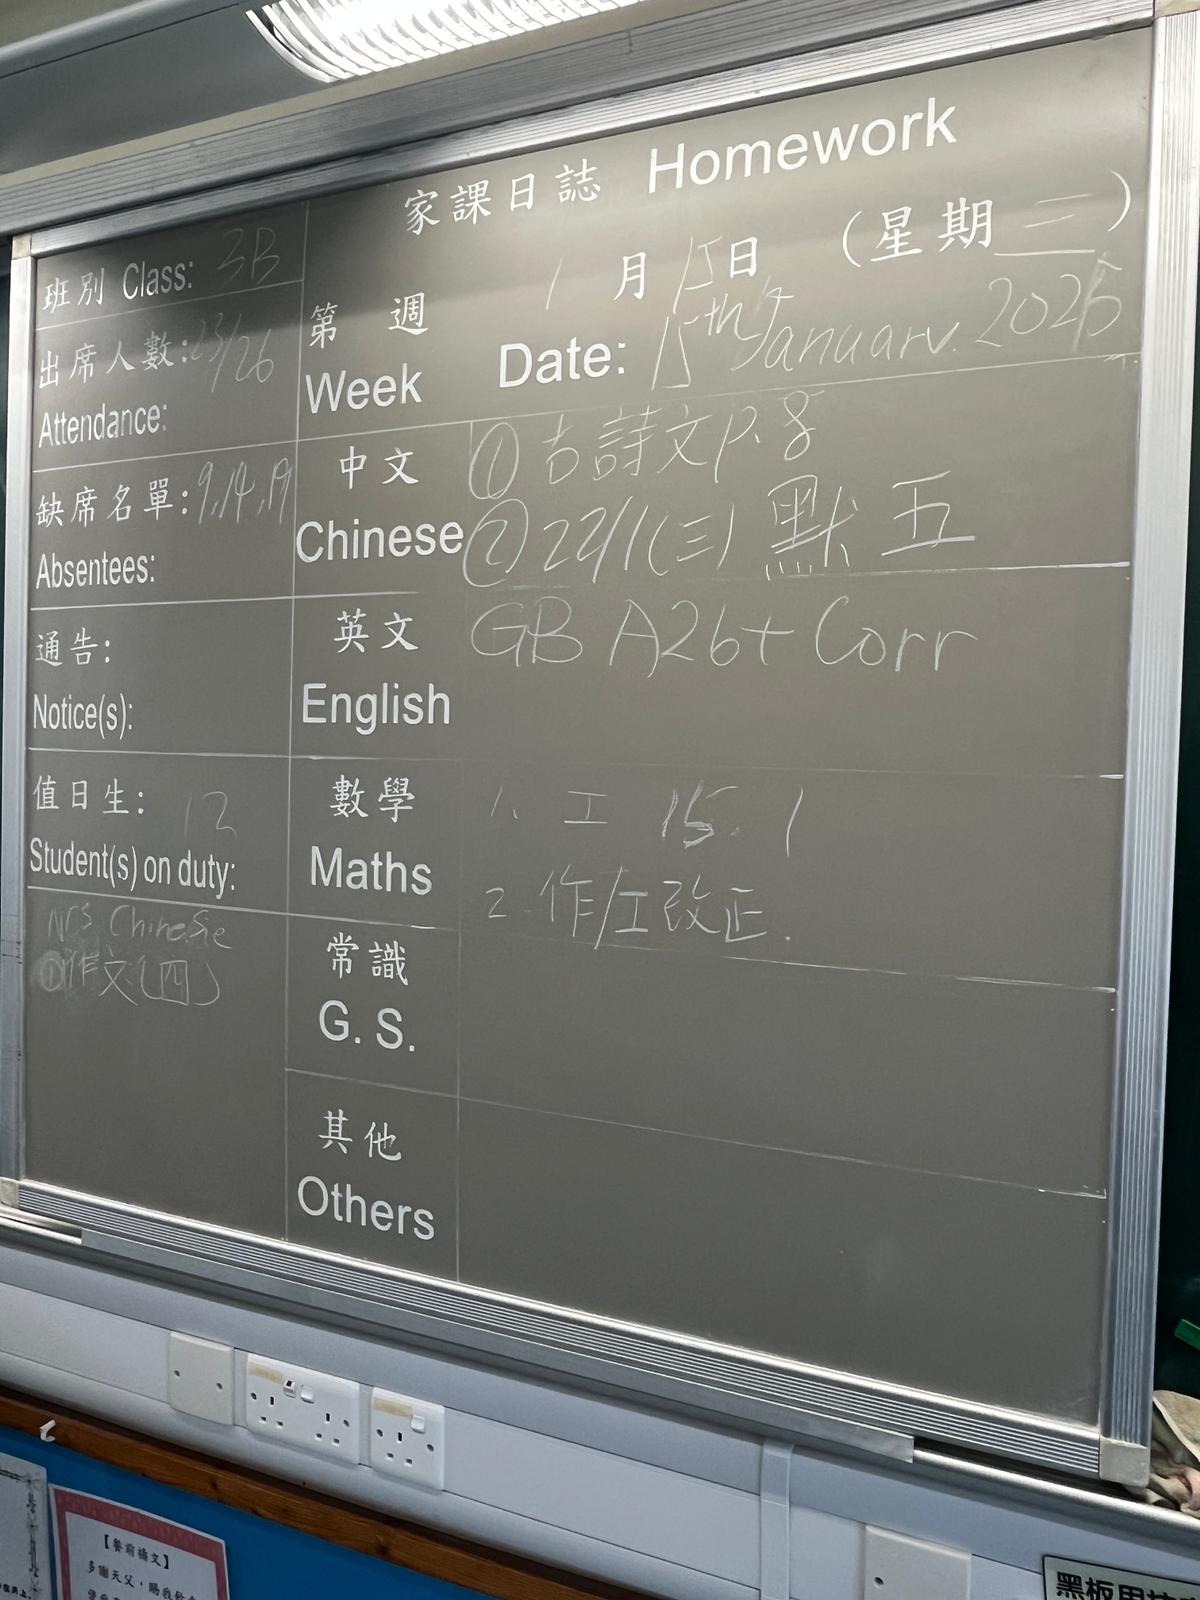 家課日誌 Homework
班別 Class: 3B
出席人數: 23/26
Attendance:
缺席名單: 9,14,19
Absentees:
通告:
Notice(s):
值日生: 12
Student(s) on duty:
NCS Chinese
①作文(四)
第 週
Week
1 月 15 日 (星期三)
Date: 15th January. 2025
中文
Chinese
① 古詩文 p.8
② 22/1(三) 默五
英文
English
GB A26+ Corr
數學
Maths
1. 工 15.1
2. 作/工改正.
常識
G. S.
其他
Others
【餐前禱文】
多謝天父，賜我飲